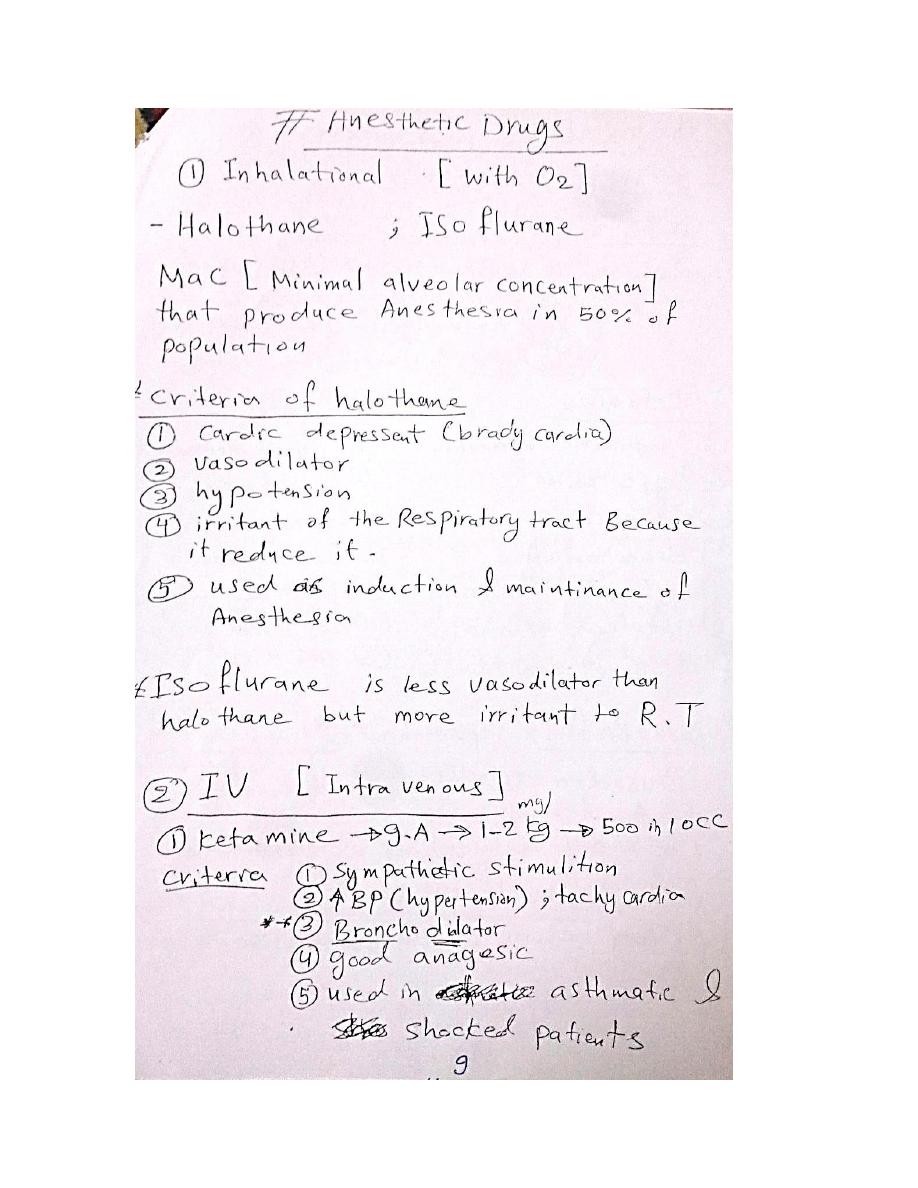 # Anesthetic Drugs
① Inhalational [with O2]
- Halothane ; Iso flurane
MaC [Minimal alveolar concentration]
that produce Anesthesia in 50% of
population
criteria of halothane
① Cardic depressent (brady cardia)
② vasodilator
③ hypotension
④ irritant of the Respiratory tract Because
it reduce it -
⑤ used as induction & maintinance of
Anesthesia
Iso flurane is less vasodilator than
halothane but more irritant to R.T
② IV [Intra venous]
① ketamine → g.A → 1-2 mg/kg → 500 in 10CC
criteria ① Sympathetic stimulition
② ↑ BP (hypertension) ; tachy cardia
**③ Broncho dilator
④ good anagesic
⑤ used in asthmatic &
shocked patients
9